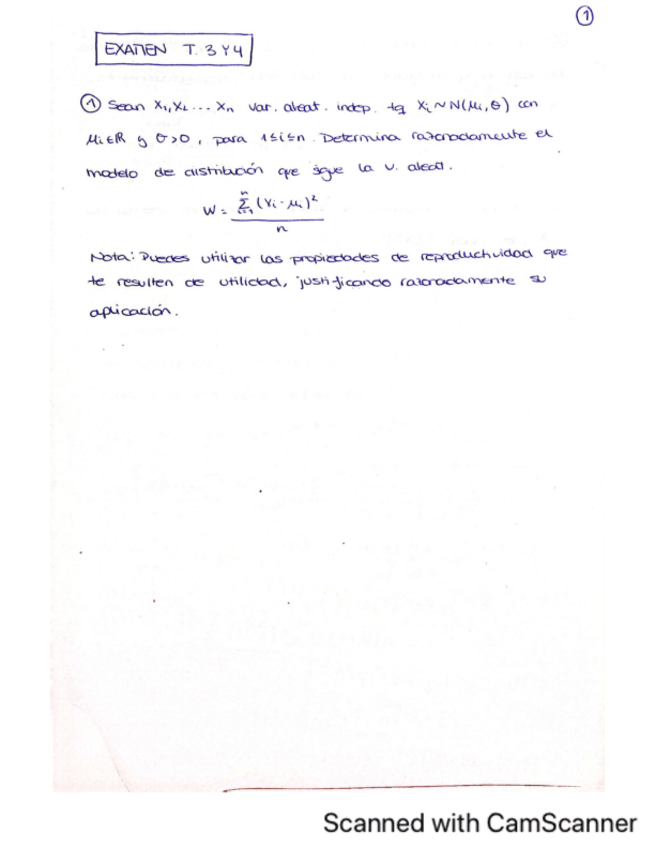 1
EXAMEN T. 3 Y 4
① Sean X₁, X₂ ... Xₙ var. aleat. indep. tq Xᵢ ~ N(μᵢ, σ) con
μᵢ ∈ R y σ > 0, para 1 ≤ i ≤ n. Determina razonadamente el
modelo de distribución que sigue la v. aleat.
W = Σᵢ₌₁ⁿ (Xᵢ - μᵢ)² / n
Nota: Puedes utilizar las propiedades de reproductividad que
te resulten de utilidad, justificando razonadamente su
aplicación.
Scanned with CamScanner